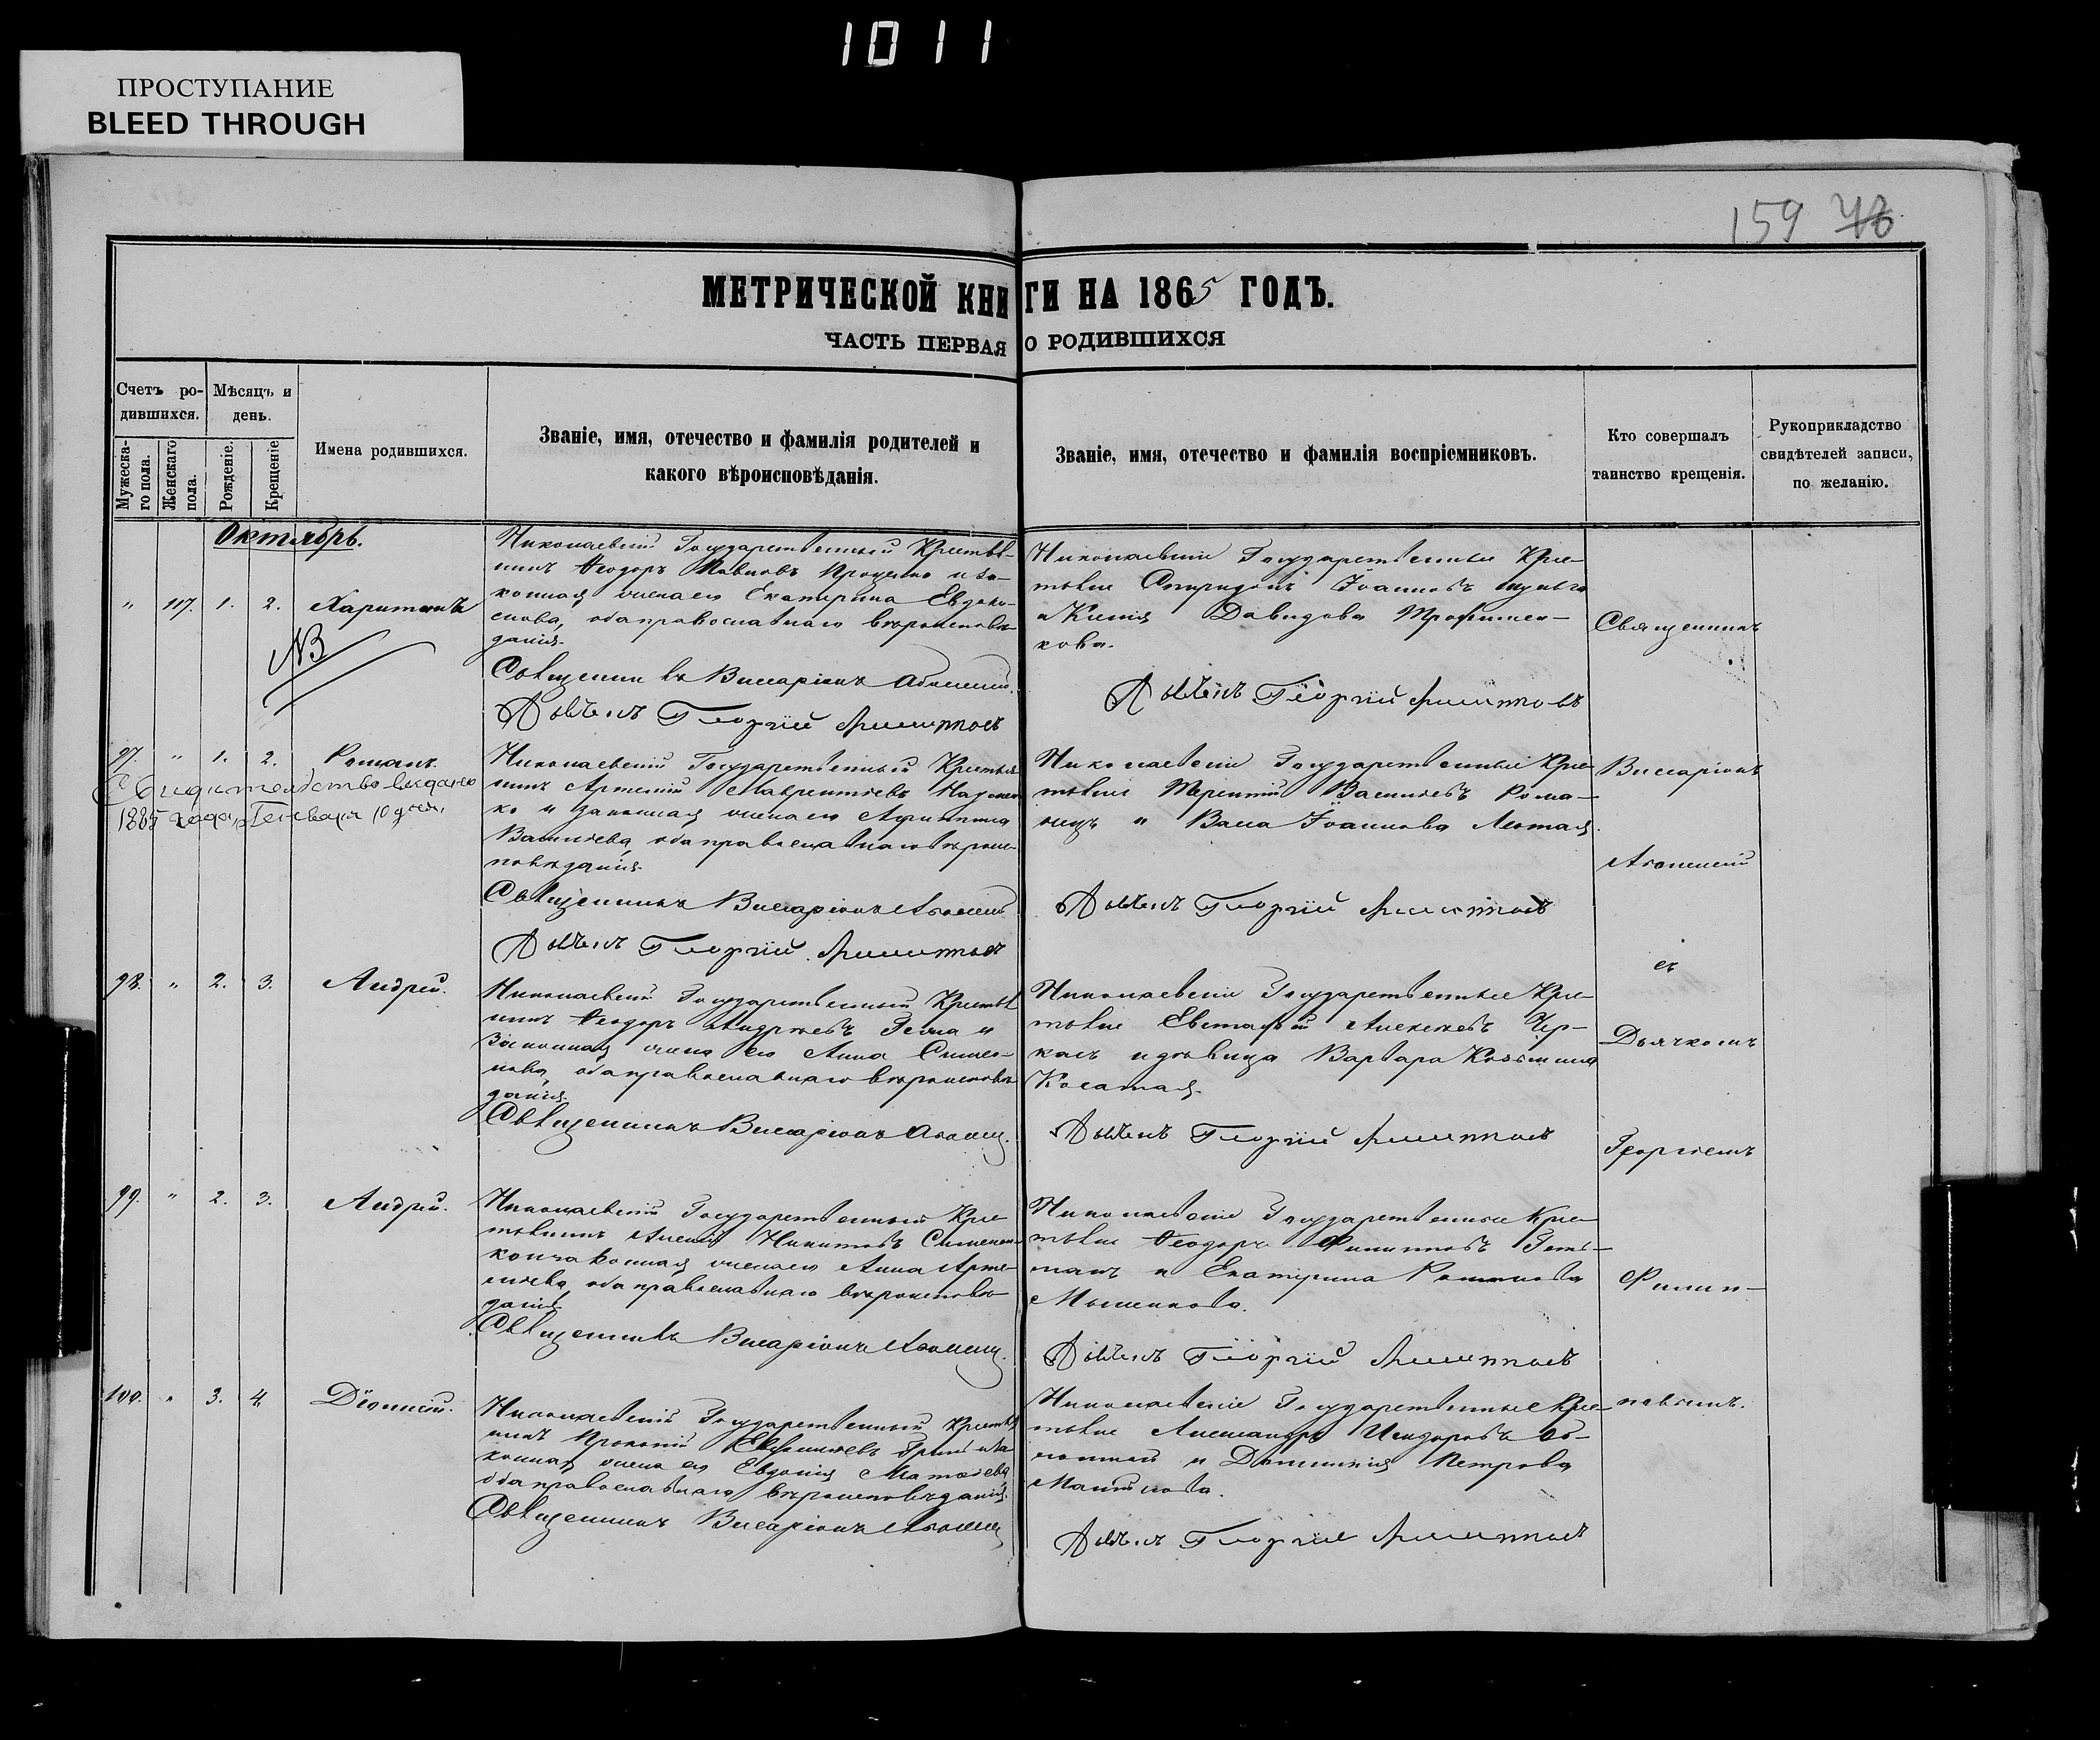 1011
ПРОСТУПАНИЕ
BLEED THROUGH
159 46
МЕТРИЧЕСКОЙ КНИГИ НА 1865 ГОДЪ.
ЧАСТЬ ПЕРВАЯ О РОДИВШИХСЯ
Счетъ ро-
дившихся.
Мужеска-
го пола.
Женскаго
пола.
Мѣсяцъ и
день.
Рожденіе.
Крещеніе
Имена родившихся.
Званіе, имя, отечество и фамилія родителей и
какого вѣроисповѣданія.
Званіе, имя, отечество и фамилія воспріемниковъ.
Кто совершалъ
таинство крещенія.
Рукоприкладство
свидѣтелей записи,
по желанію.
Октябрь.
" 117. 1. 2. Харитонъ
NB
Николаевскій Государственный Крестья-
нинъ Ѳеодоръ Проценко и за-
конная жена его Екатерина Евдоки-
мова, оба православнаго вѣроисповѣ-
данія.
Священникъ Виссаріонъ
Дьячекъ Георгій Филипповъ
Николаевскіе Государственные Кре-
стьяне Спиридонъ Іоанновъ Шульга
и Ксенія Давидова Трофимен-
кова.
Дьячекъ Георгій Филипповъ
97. " 1. 2. Романъ.
Свидетельство выдано
1885 года, Генваря 10 дня.
Николаевскій Государственный Крестья-
нинъ Артемій Лаврентьевъ
ко и законная жена его Агриппина
Васильева, оба православнаго вѣроис-
повѣданія.
Священникъ Виссаріонъ
Дьячекъ Георгій Филипповъ
Николаевскіе Государственные Кре-
стьяне Терентій Васильевъ Рома-
нецъ и Васса Іоаннова Лютая.
Дьячекъ Георгій Филипповъ
98. " 2. 3. Андрей.
Николаевскій Государственный Крестья-
нинъ Ѳеодоръ Андреевъ и
законная жена его Анна Симео-
нова, оба православнаго вѣроисповѣ-
данія.
Священникъ Виссаріонъ
Николаевскіе Государственные Кре-
стьяне Евстафій Алексеевъ Чер-
касъ и дѣвица Варвара Козьмина
Косатая.
Дьячекъ Георгій Филипповъ
99. " 2. 3. Андрей.
Николаевскій Государственный Кре-
стьянинъ Алексій Никитовъ Симонен-
ко и законная жена его Анна Арте-
мьева, оба православнаго вѣроисповѣ-
данія.
Священникъ Виссаріонъ
Николаевскіе Государственные Кре-
стьяне Ѳеодоръ Филипповъ Геть-
манъ и Екатерина Романова
Дьячекъ Георгій Филипповъ
100. " 3. 4. Діонисій.
Николаевскій Государственный Крестья-
нинъ Прокопій и за-
конная жена его Евдокія Матѳеева
оба православнаго вѣроисповѣданія.
Священникъ Виссаріонъ
Николаевскіе Государственные Кре-
стьяне Александръ Исидоровъ
и Домникія Петрова
Дьячекъ Георгій Филипповъ
Священникъ
Виссаріонъ
съ
Дьячкомъ
Георгіемъ
Филип-
повымъ.